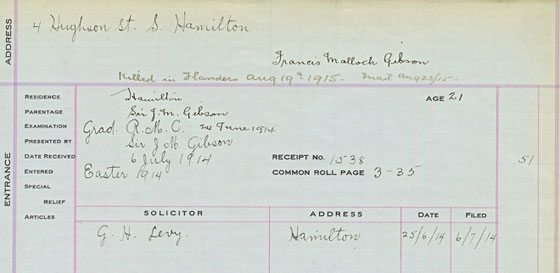 ADDRESS
4 Hughson St. S. Hamilton
Francis Malloch Gibson
Killed in Flanders Aug 19th 1915. Mail Aug 23/15.
ENTRANCE
RESIDENCE Hamilton AGE 21
PARENTAGE Sir J. M. Gibson
EXAMINATION Grad. R.M.C. 24 June 1914
PRESENTED BY Sir J M. Gibson
DATE RECEIVED 6 July 1914 RECEIPT NO. 1538 51
ENTERED Easter 1914 COMMON ROLL PAGE 3-35
SPECIAL
RELIEF
ARTICLES
SOLICITOR ADDRESS DATE FILED
G. H. Levy. Hamilton 25/6/14 6/7/14